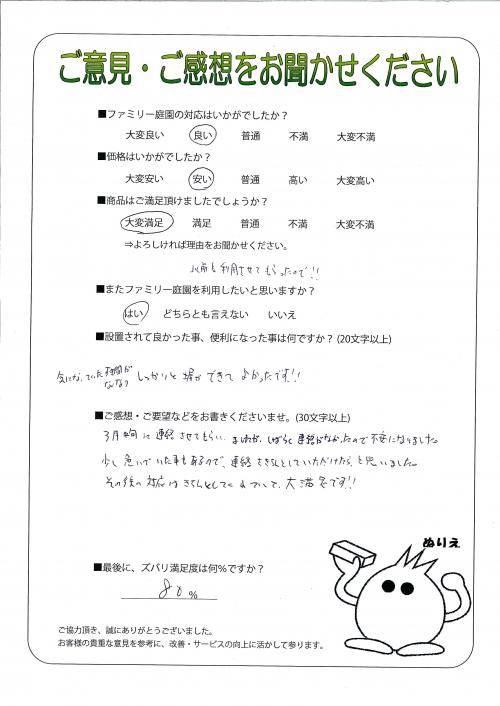 ご意見・ご感想をお聞かせください
■ファミリー庭園の対応はいかがでしたか？
大変良い 良い 普通 不満 大変不満
■価格はいかがでしたか？
大変安い 安い 普通 高い 大変高い
■商品はご満足頂けましたでしょうか？
大変満足 満足 普通 不満 大変不満
⇒よろしければ理由をお聞かせください。
以前も利用させてもらったので!!
■またファミリー庭園を利用したいと思いますか？
はい どちらとも言えない いいえ
■設置されて良かった事、便利になった事は何ですか？(20文字以上)
気になっていた 隙間が
なくなり しっかりと 塀が できて よかったです!!
■ご感想・ご要望などをお書きくださいませ。(30文字以上)
3月 に 連絡 させてもらい しばらく 連絡がなかったので 不安になりました
少し 急いでいた事もあるので、連絡をきちんとしていただけたら、と思いました
その後の 対応は きちんとして 大満足です!!
ぬりえ
■最後に、ズバリ満足度は何％ですか？
80 %
ご協力頂き、誠にありがとうございました。
お客様の貴重な意見を参考に、改善・サービスの向上に活かして参ります。